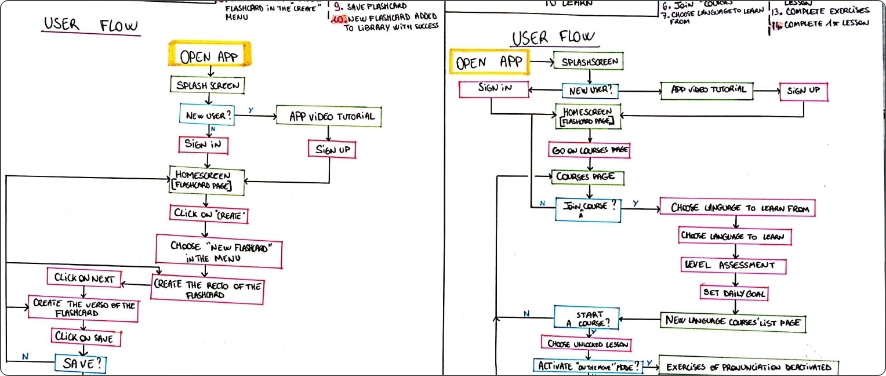 FLASHCARD IN THE CREATE"
MENU
9. SAVE FLASHCARD
10. NEW FLASHCARD ADDED
TO LIBRARY WITH SUCCESS
USER FLOW
OPEN APP
SPLASH SCREEN
NEW USER?
Y
APP VIDEO TUTORIAL
N
SIGN IN
SIGN UP
HOMESCREEN
[FLASHCARD PAGE]
CLICK ON "CREATE"
CHOOSE "NEW FLASHCARD"
IN THE MENU
CLICK ON NEXT
CREATE THE RECTO OF THE
FLASHCARD
CREATE THE VERSO OF THE
FLASHCARD
CLICK ON SAVE
N
SAVE?
TO LEARN
6. JOIN "COURSES
7. CHOOSE LANGUAGE TO LEARN
FROM
LESSON
13. COMPLETE EXERCISES
14. COMPLETE 1st LESSON
USER FLOW
OPEN APP
SPLASHSCREEN
SIGN IN
NEW USER?
APP VIDEO TUTORIAL
SIGN UP
HOMESCREEN
[FLASHCARD PAGE]
GO ON COURSES PAGE
COURSES PAGE
N
JOIN A COURSE?
Y
CHOOSE LANGUAGE TO LEARN FROM
CHOOSE LANGUAGE TO LEARN
LEVEL ASSESSMENT
SET DAILY GOAL
N
START
A COURSE?
NEW LANGUAGE COURSES' LIST PAGE
Y
CHOOSE UNLOCKED LESSON
ACTIVATE "ON THE MOVE" MODE?
Y
EXERCISES OF PRONUNCIATION DEACTIVATED